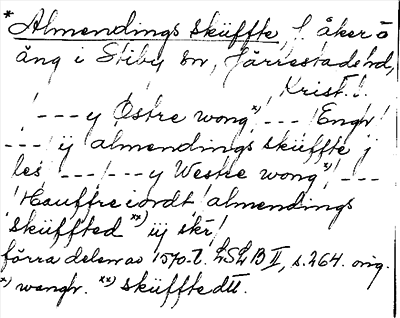 *Almendings sküffte, f. åker o
äng i Stiby sn, Järrestads hd,
Krist. l.
/---y Østre wong *) /---/ Engh/
---/ iij almendings sküffte j
les /---/---y Westre wong *) /---
/ Hauffreiordt / almendings
sküffted **) iij skr/
förra delen av 1570-t. LSLB II, s. 264. orig.
*) wangh. **) sküfftedtt.